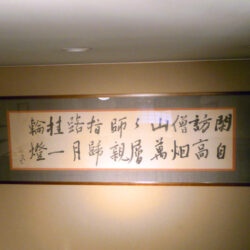 閑自
訪高
僧烟
山萬
々層
師親
指歸
路月
挂一
輪燈